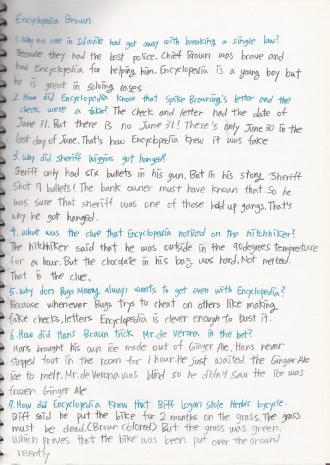 Encyclopedia Brown
1. Why no one in Idaville had got away with breaking a single law?
Because they had the best police. Chief Brown was brave and
had Encyclopedia for helping him. Encyclopedia is a young boy but
he is great in solving cases
2. How did Encyclopedia know that Spike Browning's letter and the
check were a fake? The check and letter had the date of
June 31. But there is no June 31! There's only June 30 in the
last day of June. That's how Encyclopedia knew it was fake
3. Why did sheriff wiggins got hanged?
Sheriff only had six bullets in his gun. But in his story, Sheriff
shot 7 bullets! The bank owner must have known that so he
was sure that sheriff was one of those hold up gangs. That's
why he got hanged.
4. What was the clue that Encyclopedia noticed on the hitchhiker?
The hitchhiker said that he was outside in the 90degrees tempreture
for a hour. But the chocolate in his bag was hard. Not melted.
That is the clue.
5. Why does Bugs Meany always wants to get even with Encyclopedia?
Because whenever Bugs trys to cheat on others like making
fake checks, letters Encyclopedia is clever enough to bust it.
6. How did Hans Braun trick Mr. de Verona in the bet?
Hans brought his own ice made out of Ginger Ale. Hans never
stepped foot in the room for 1 hour. He just waited the Ginger Ale
ice to melt. Mr. de Verona was blind so he didn't saw the ice was
frozen Ginger Ale
7. How did Encyclopedia knew that Biff Logan stole Herb's bicycle.
Biff said he put the bike for 2 months on the grass. The grass
must be dead. (Brown colored) But the grass was green.
Which proves that the bike was been put over the ground
recently